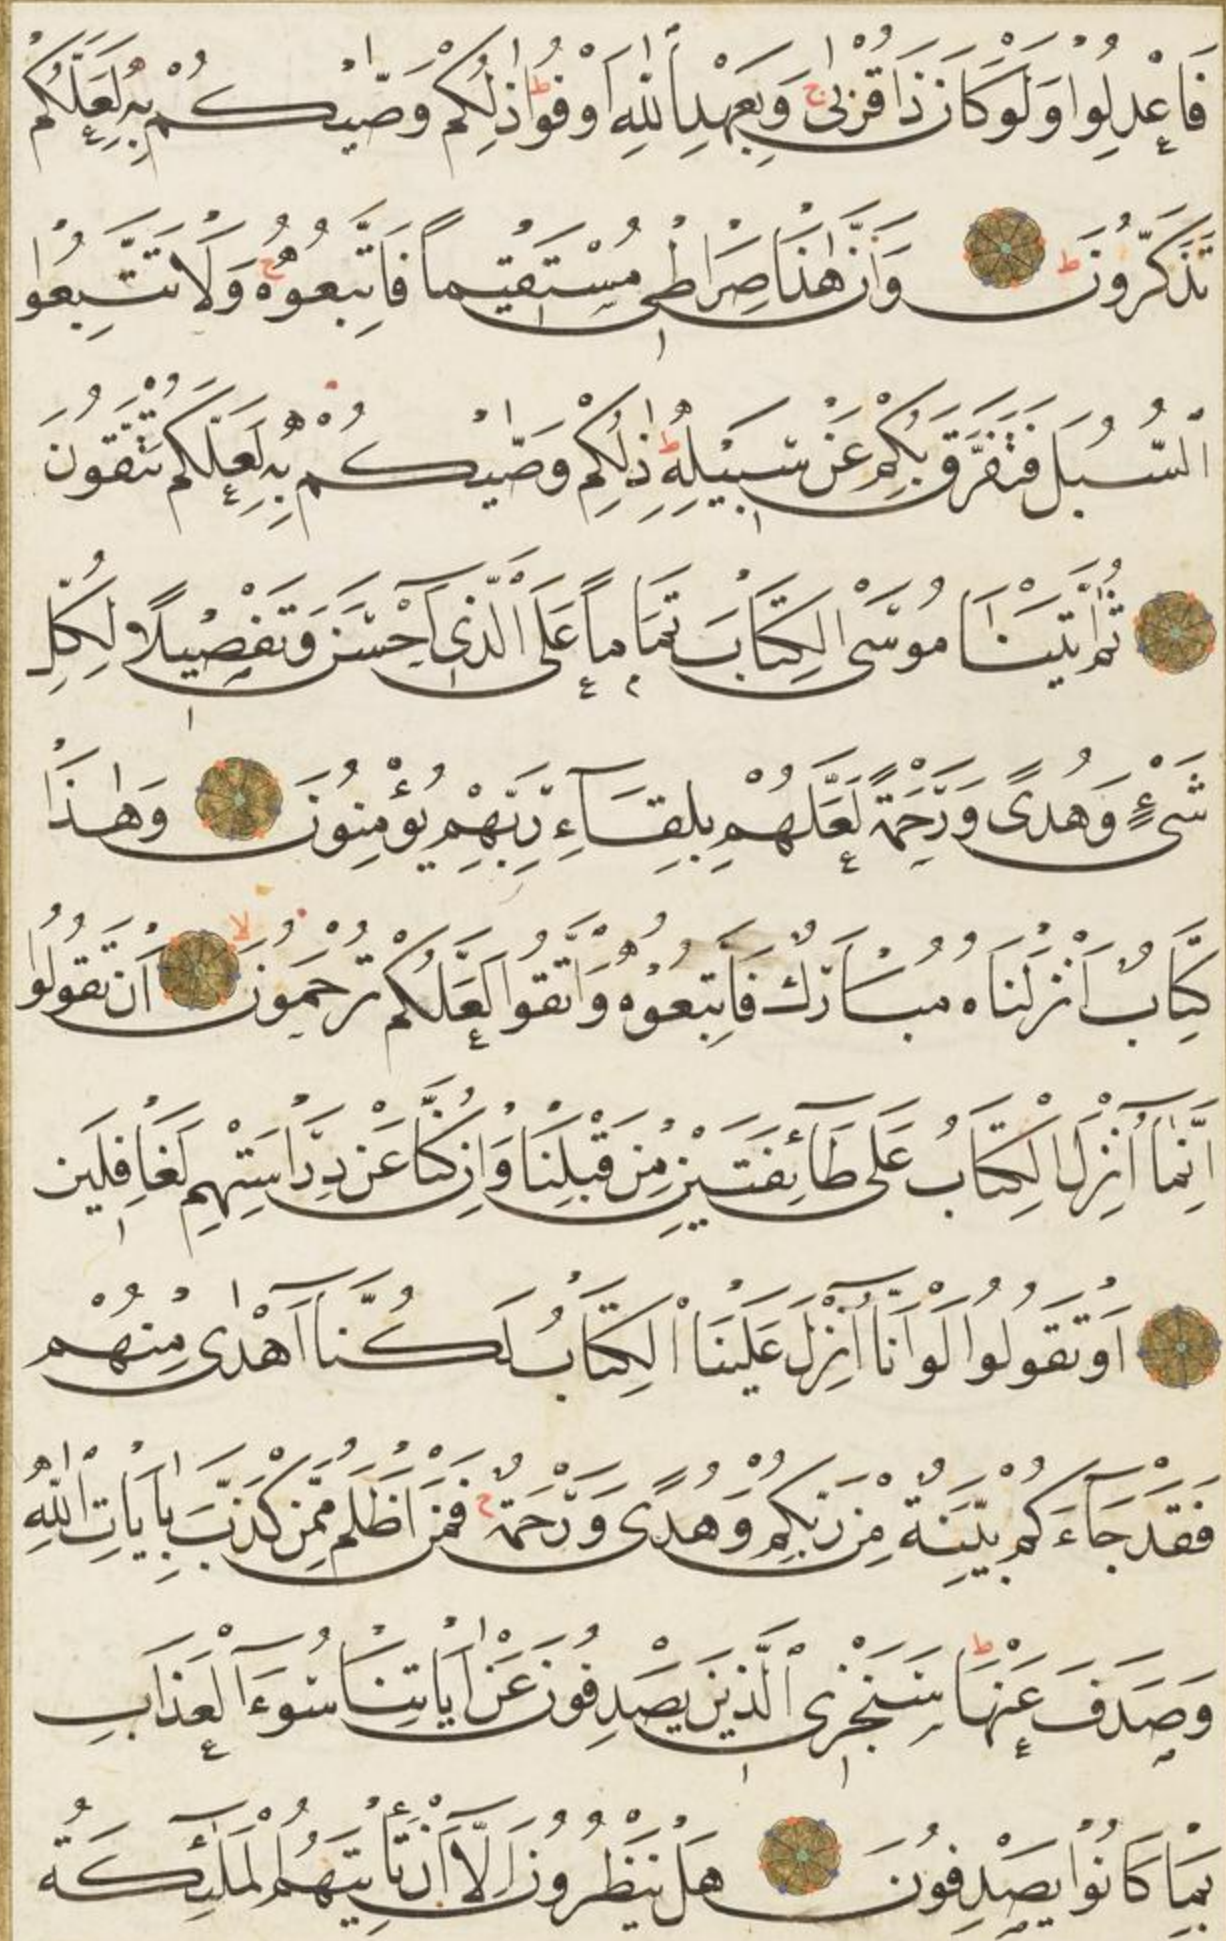 فَاعْدِلُوا وَلَوْ كَانَ ذَا قُرْبٰى ج وَبِعَهْدِ اللّٰهِ اَوْفُوا ط ذٰلِكُمْ وَصّٰيكُمْ بِهِ لَعَلَّكُمْ
تَذَكَّرُونَ ط وَاَنَّ هٰذَا صِرَاطِى مُسْتَقِيْماً فَاتَّبِعُوهُ ج وَلَا تَتَّبِعُوا
السُّبُلَ فَتَفَرَّقَ بِكُمْ عَنْ سَبِيْلِهِ ط ذٰلِكُمْ وَصّٰيكُمْ بِهِ لَعَلَّكُمْ تَتَّقُونَ
ثُمَّ اٰتَيْنَا مُوسَى الْكِتَابَ تَمَاماً عَلَى الَّذِى اَحْسَنَ وَتَفْصِيْلًا لِكُلِّ
شَىْءٍ وَهُدًى وَرَحْمَةً لَعَلَّهُمْ بِلِقَآءِ رَبِّهِمْ يُؤْمِنُونَ وَهٰذَا
كِتَابٌ اَنْزَلْنَاهُ مُبَارَكٌ فَاتَّبِعُوْهُ وَاتَّقُوا لَعَلَّكُمْ تُرْحَمُونَ لا اَنْ تَقُولُوا
اِنَّمَآ اُنْزِلَ الْكِتَابُ عَلٰى طَآئِفَتَيْنِ مِنْ قَبْلِنَا وَاِنْ كُنَّا عَنْ دِرَاسَتِهِمْ لَغَافِلِيْنَ
اَوْ تَقُولُوا لَوْ اَنَّآ اُنْزِلَ عَلَيْنَا الْكِتَابُ لَكُنَّآ اَهْدٰى مِنْهُمْ
فَقَدْ جَآءَكُمْ بَيِّنَةٌ مِنْ رَبِّكُمْ وَهُدًى وَرَحْمَةٌ ج فَمَنْ اَظْلَمُ مِمَّنْ كَذَّبَ بِاٰيَاتِ اللّٰهِ
وَصَدَفَ عَنْهَا ط سَنَجْزِى الَّذِينَ يَصْدِفُونَ عَنْ اٰيَاتِنَا سُوءَ الْعَذَابِ
بِمَا كَانُوْا يَصْدِفُونَ هَلْ يَنْظُرُونَ اِلَّآ اَنْ تَأْتِيَهُمُ الْمَلٰئِكَةُ